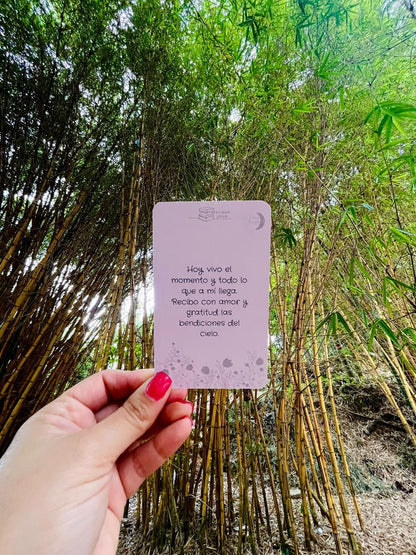 Hoy, vivo el
momento y todo lo
que a mí llega.
Recibo con amor y
gratitud las
bendiciones del
cielo.